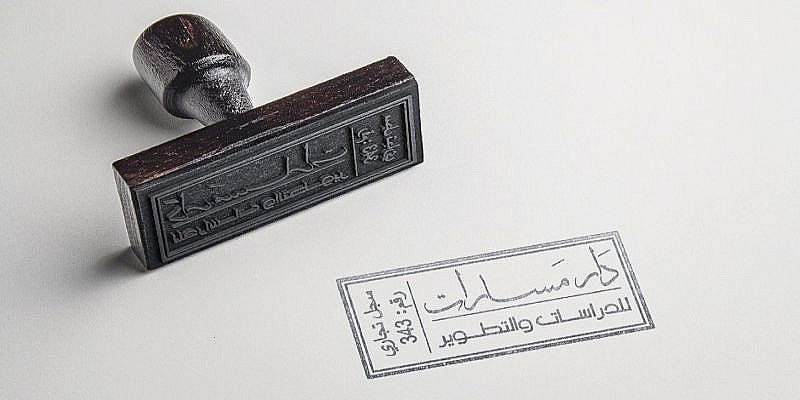 دَار مَسارات
للدراسات والتطوير
سجل تجاري
رقم: 343